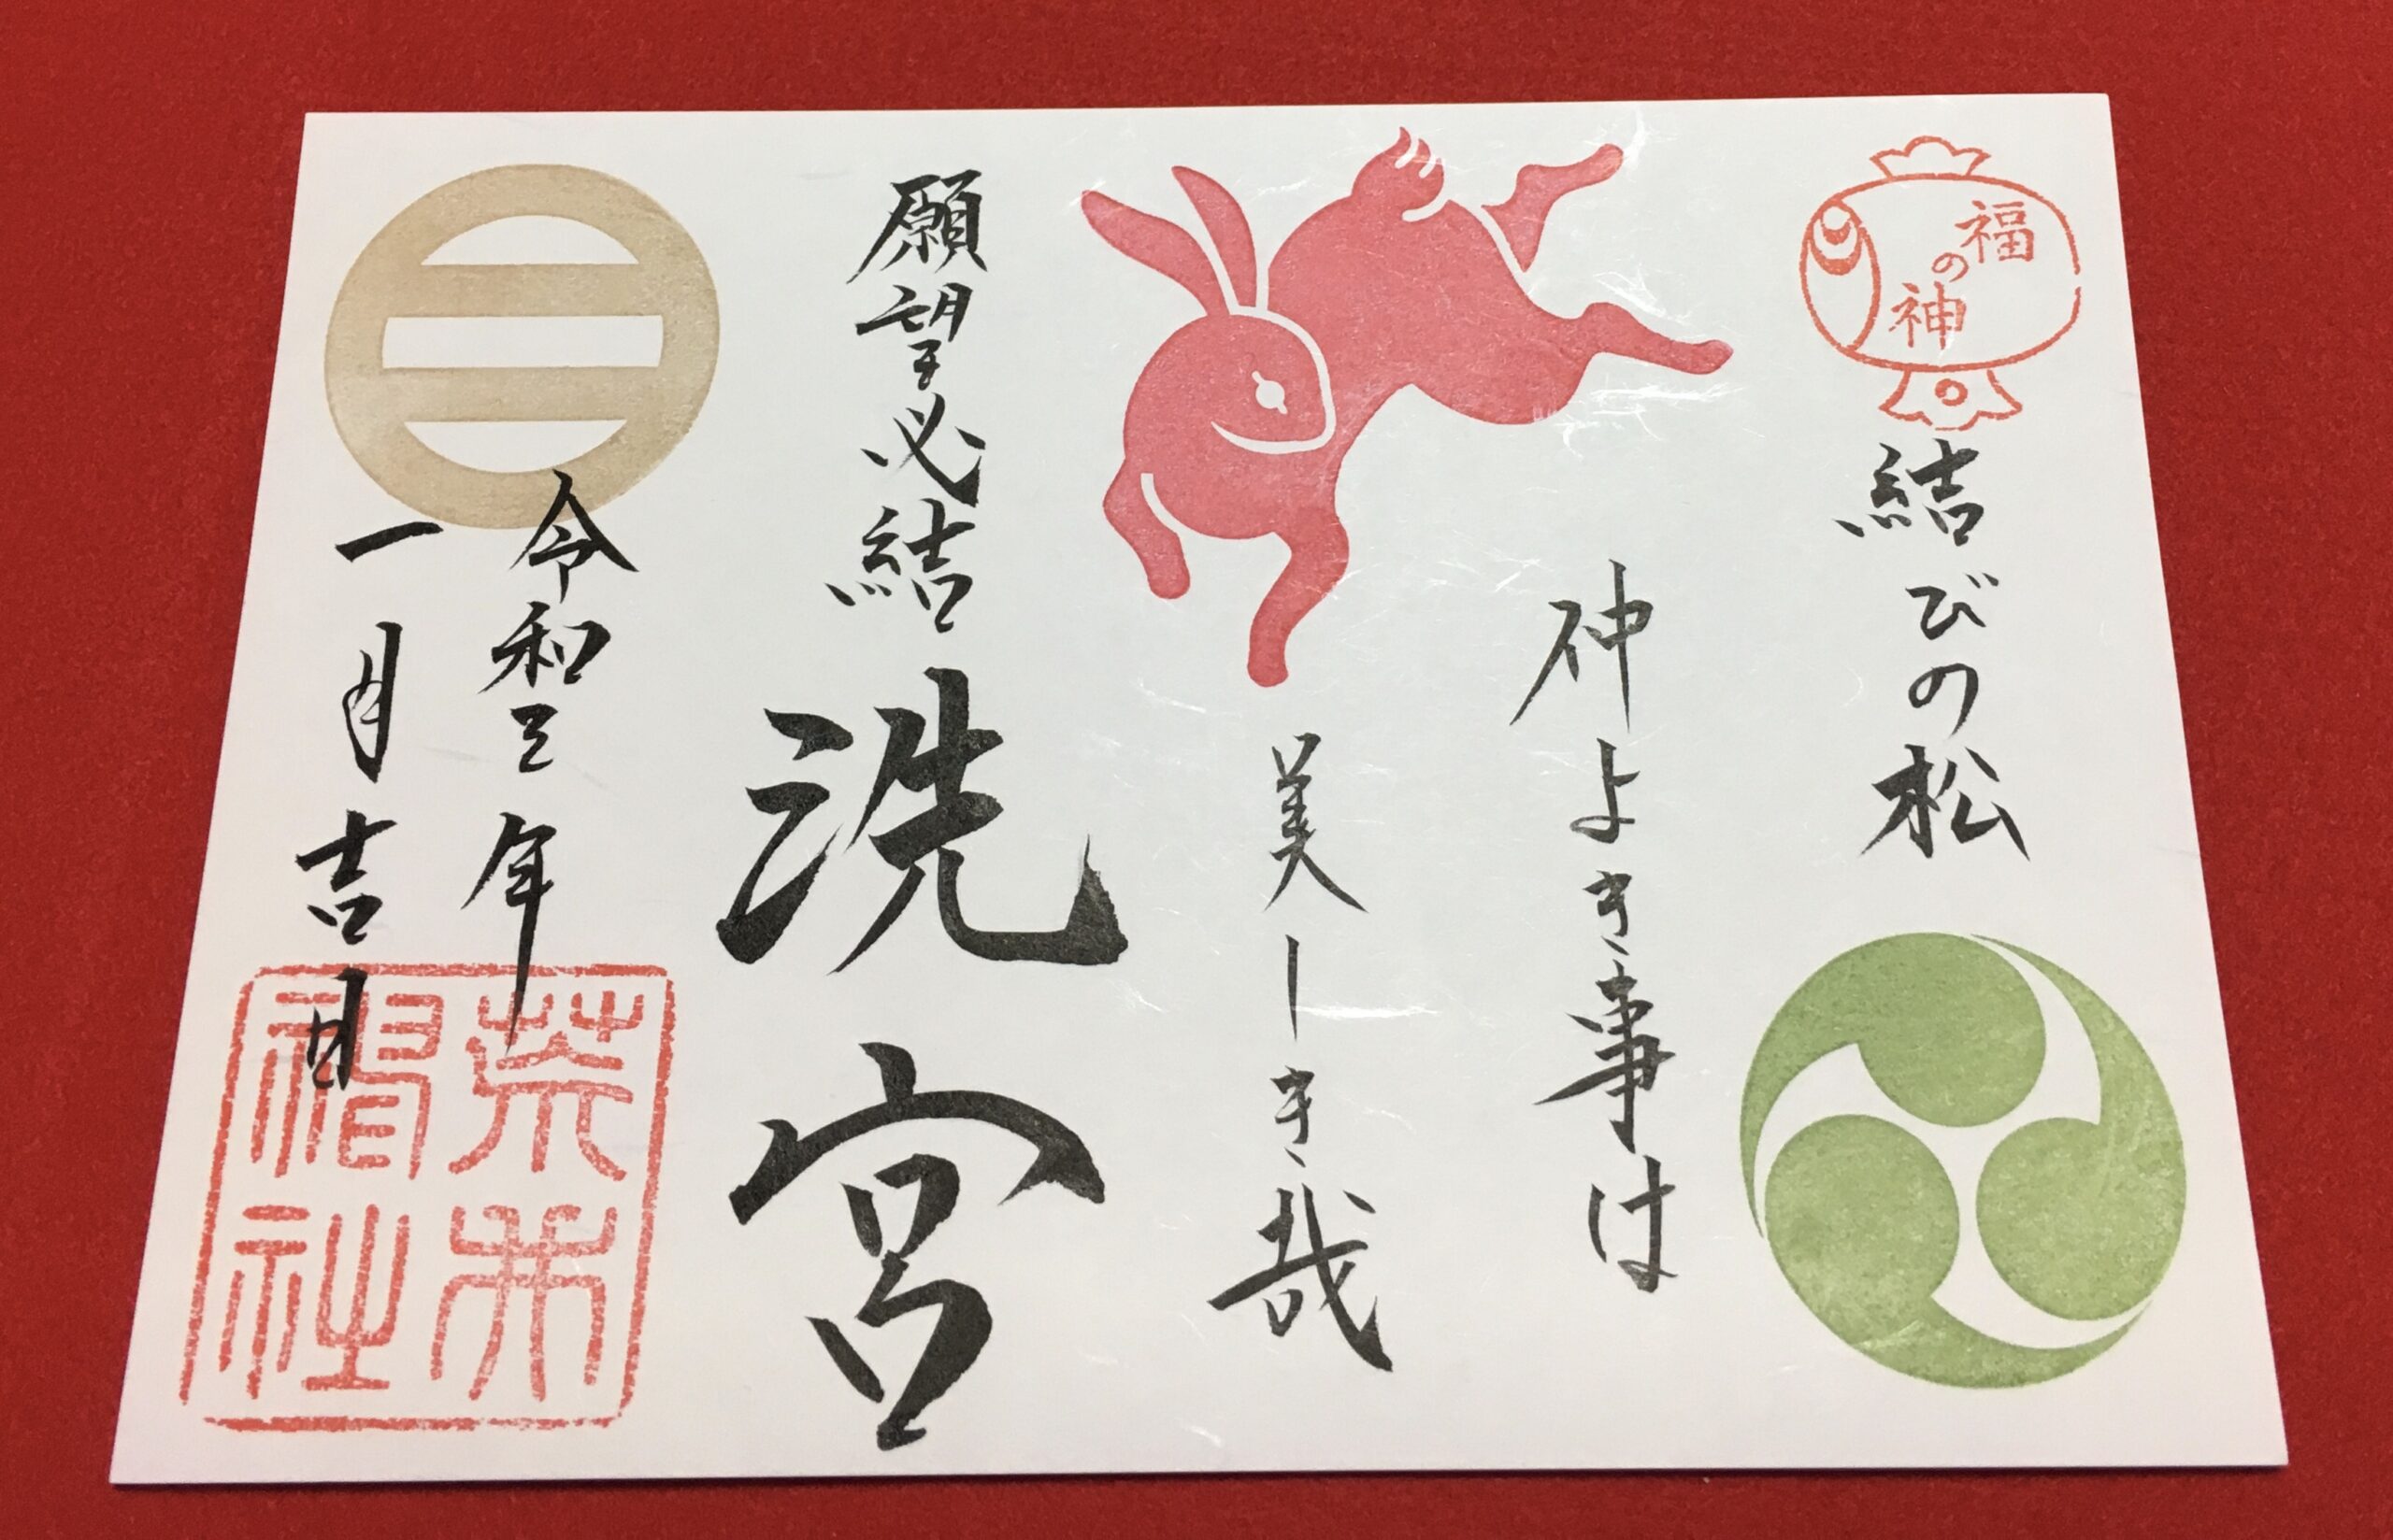 福の神
結びの松
神よき事は
美しき哉
願望必結
洗宮
令和三年
一月吉日